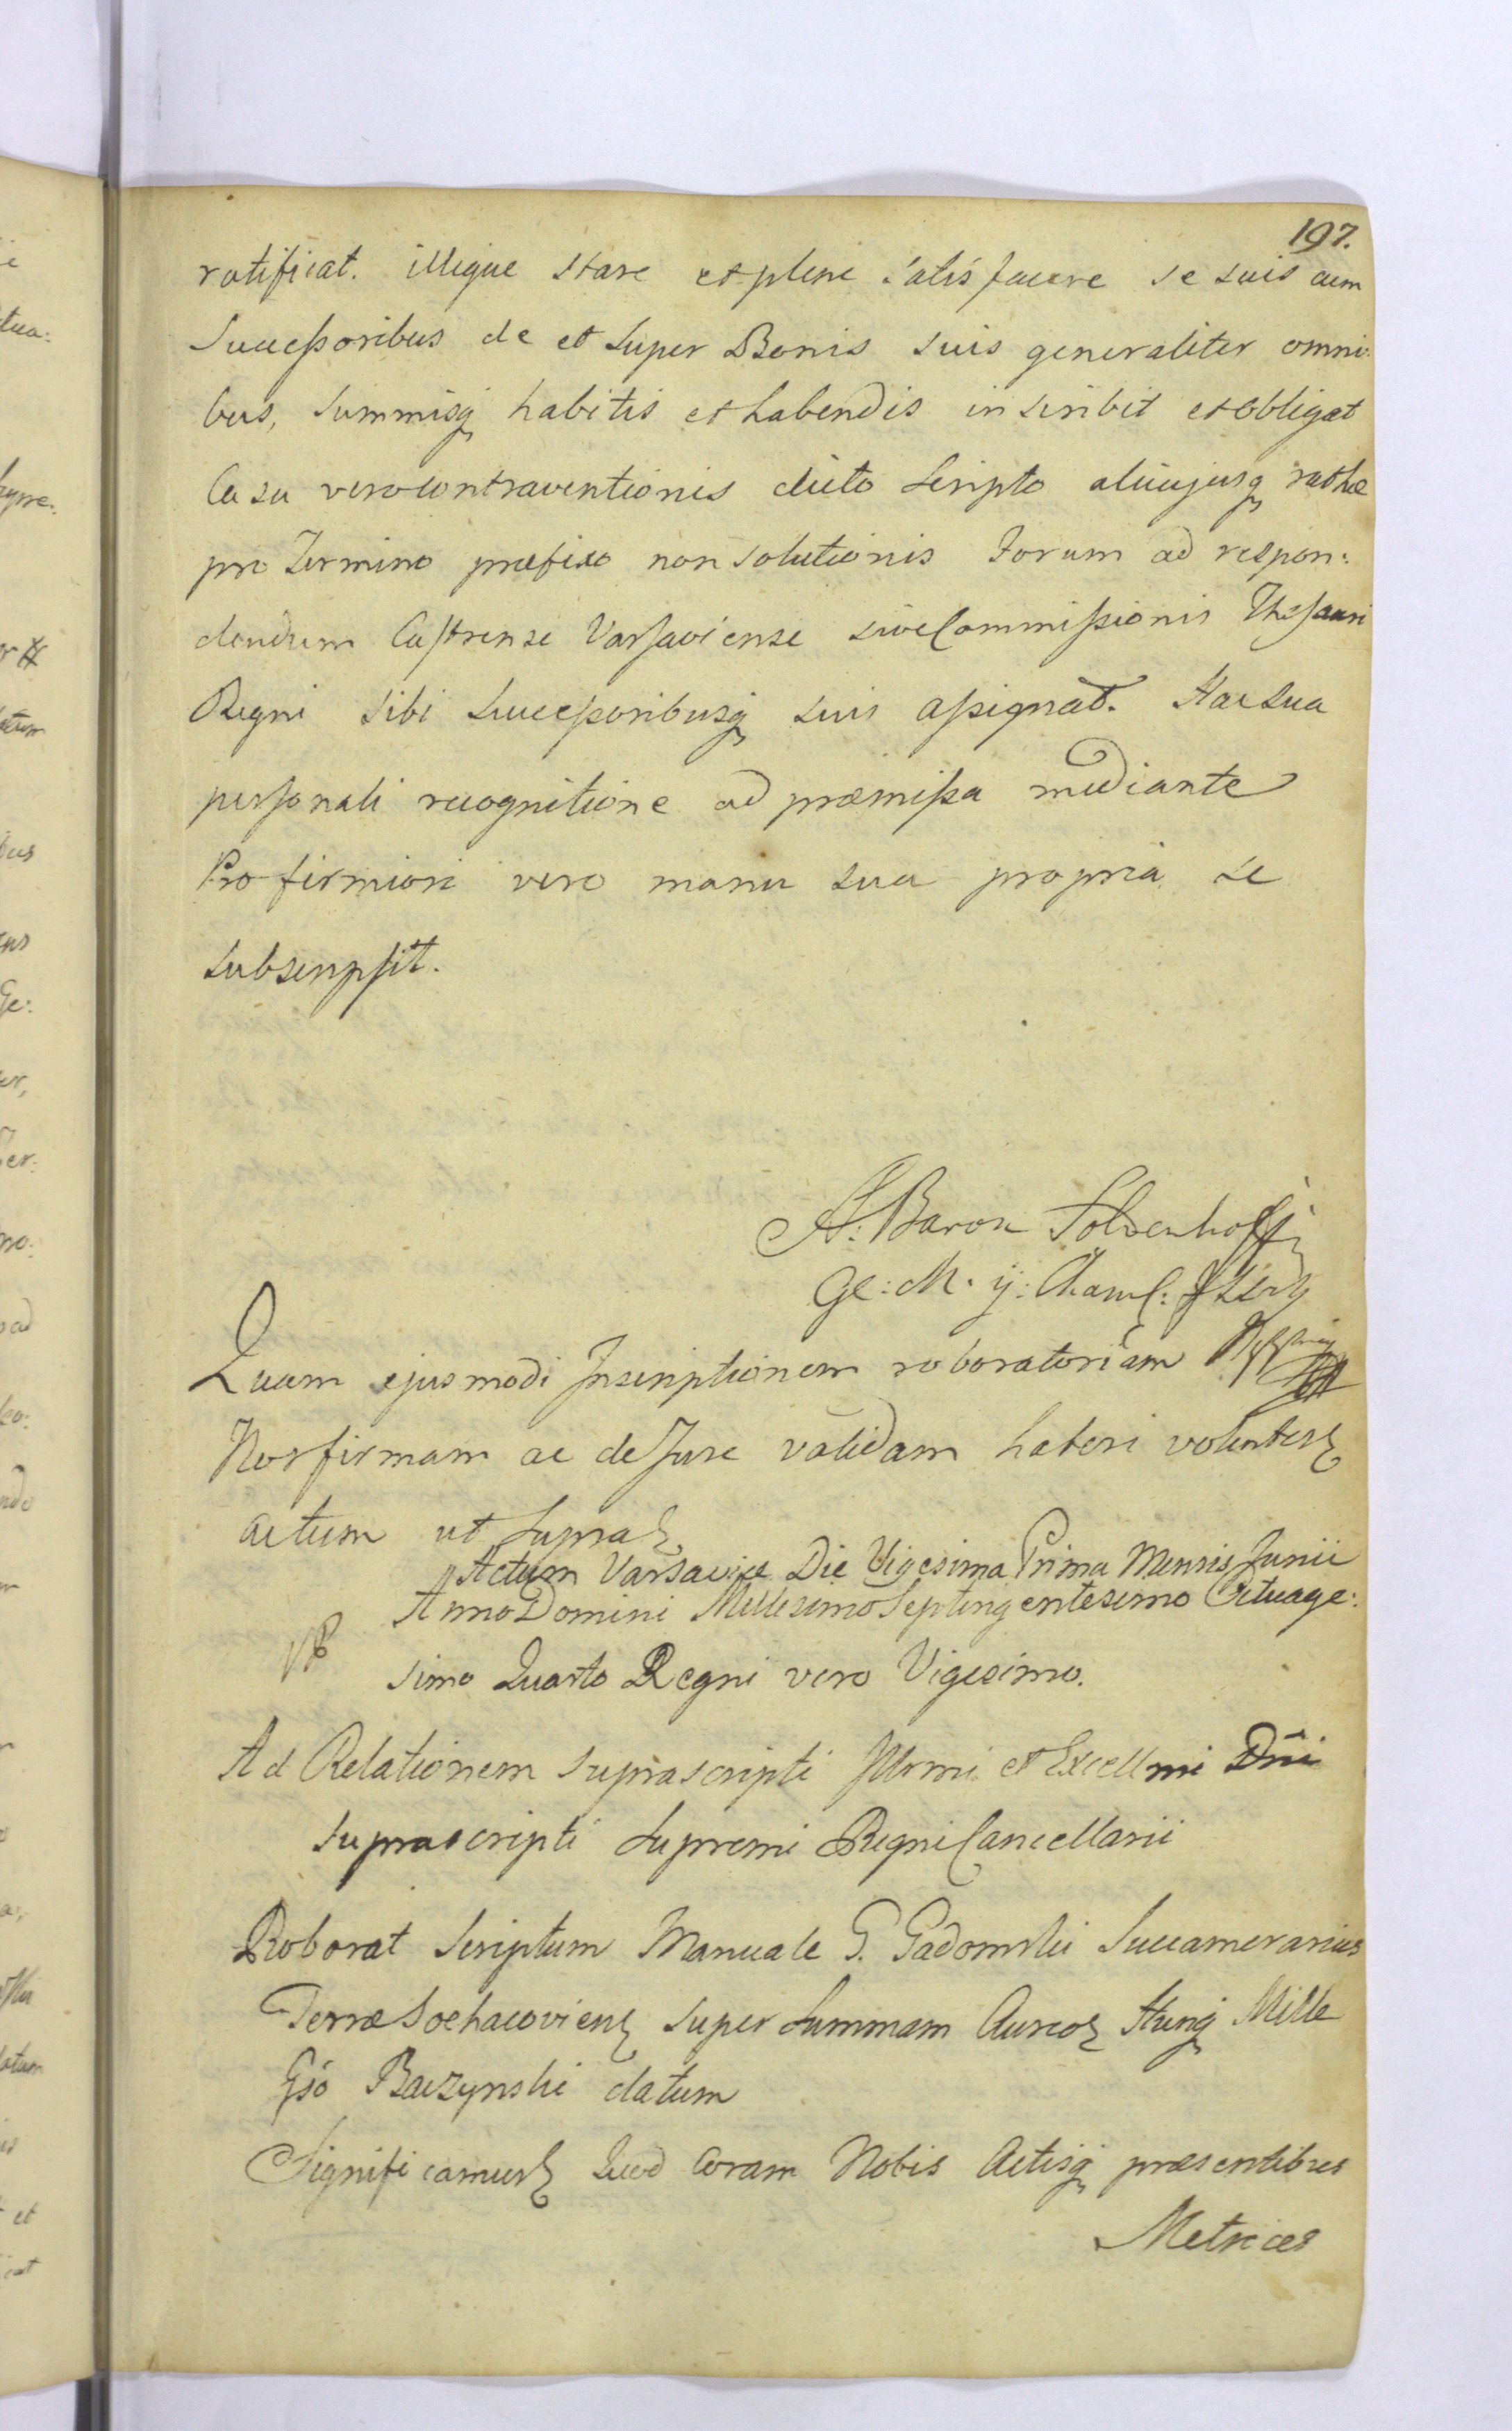 197.
ratificat. illique stare et plene satisfacere se suis cum
Successoribus de et super Bonis suis generaliter omni:
bus, summisq habitis et habendis inscribit et obligat
Casu vero contraventionis dicto scripto alicujusq rathæ
pro Termino præfixo non solutionis Forum ad respon:
dendum Castrense Varsaviense sive Commissionis Thesauri
Regni sibi Successoribusq suis assignat. Hac sua
personali recognitione ad præmissa mediante
Pro firmiori vero manu sua propria se
subscripsit.
A: Baron
Ge: M. y:
Quam ejusmodi Inscriptionem roboratoriam
Nos firmam ac de Jure validam haberi volentes
actum ut supra
Actum Varsaviæ Die Vigesima Prima Mensis Junii
Anno Domini Millesimo Septingentesimo Octuage:
simo Quarto Regni vero Vigesimo.
Ad Relationem suprascripti Illrmi et Excellmi Dni
suprascripti Supremi Regni Cancellarii
Roborat Scriptum Manuale G. Gadomski Succamerarius
Terræ Sochacoviens super Summam Aureor Hung Mille
Gso Baczynski datum
Significamus Quod Coram Nobis Actisq præsentibus
Metrices